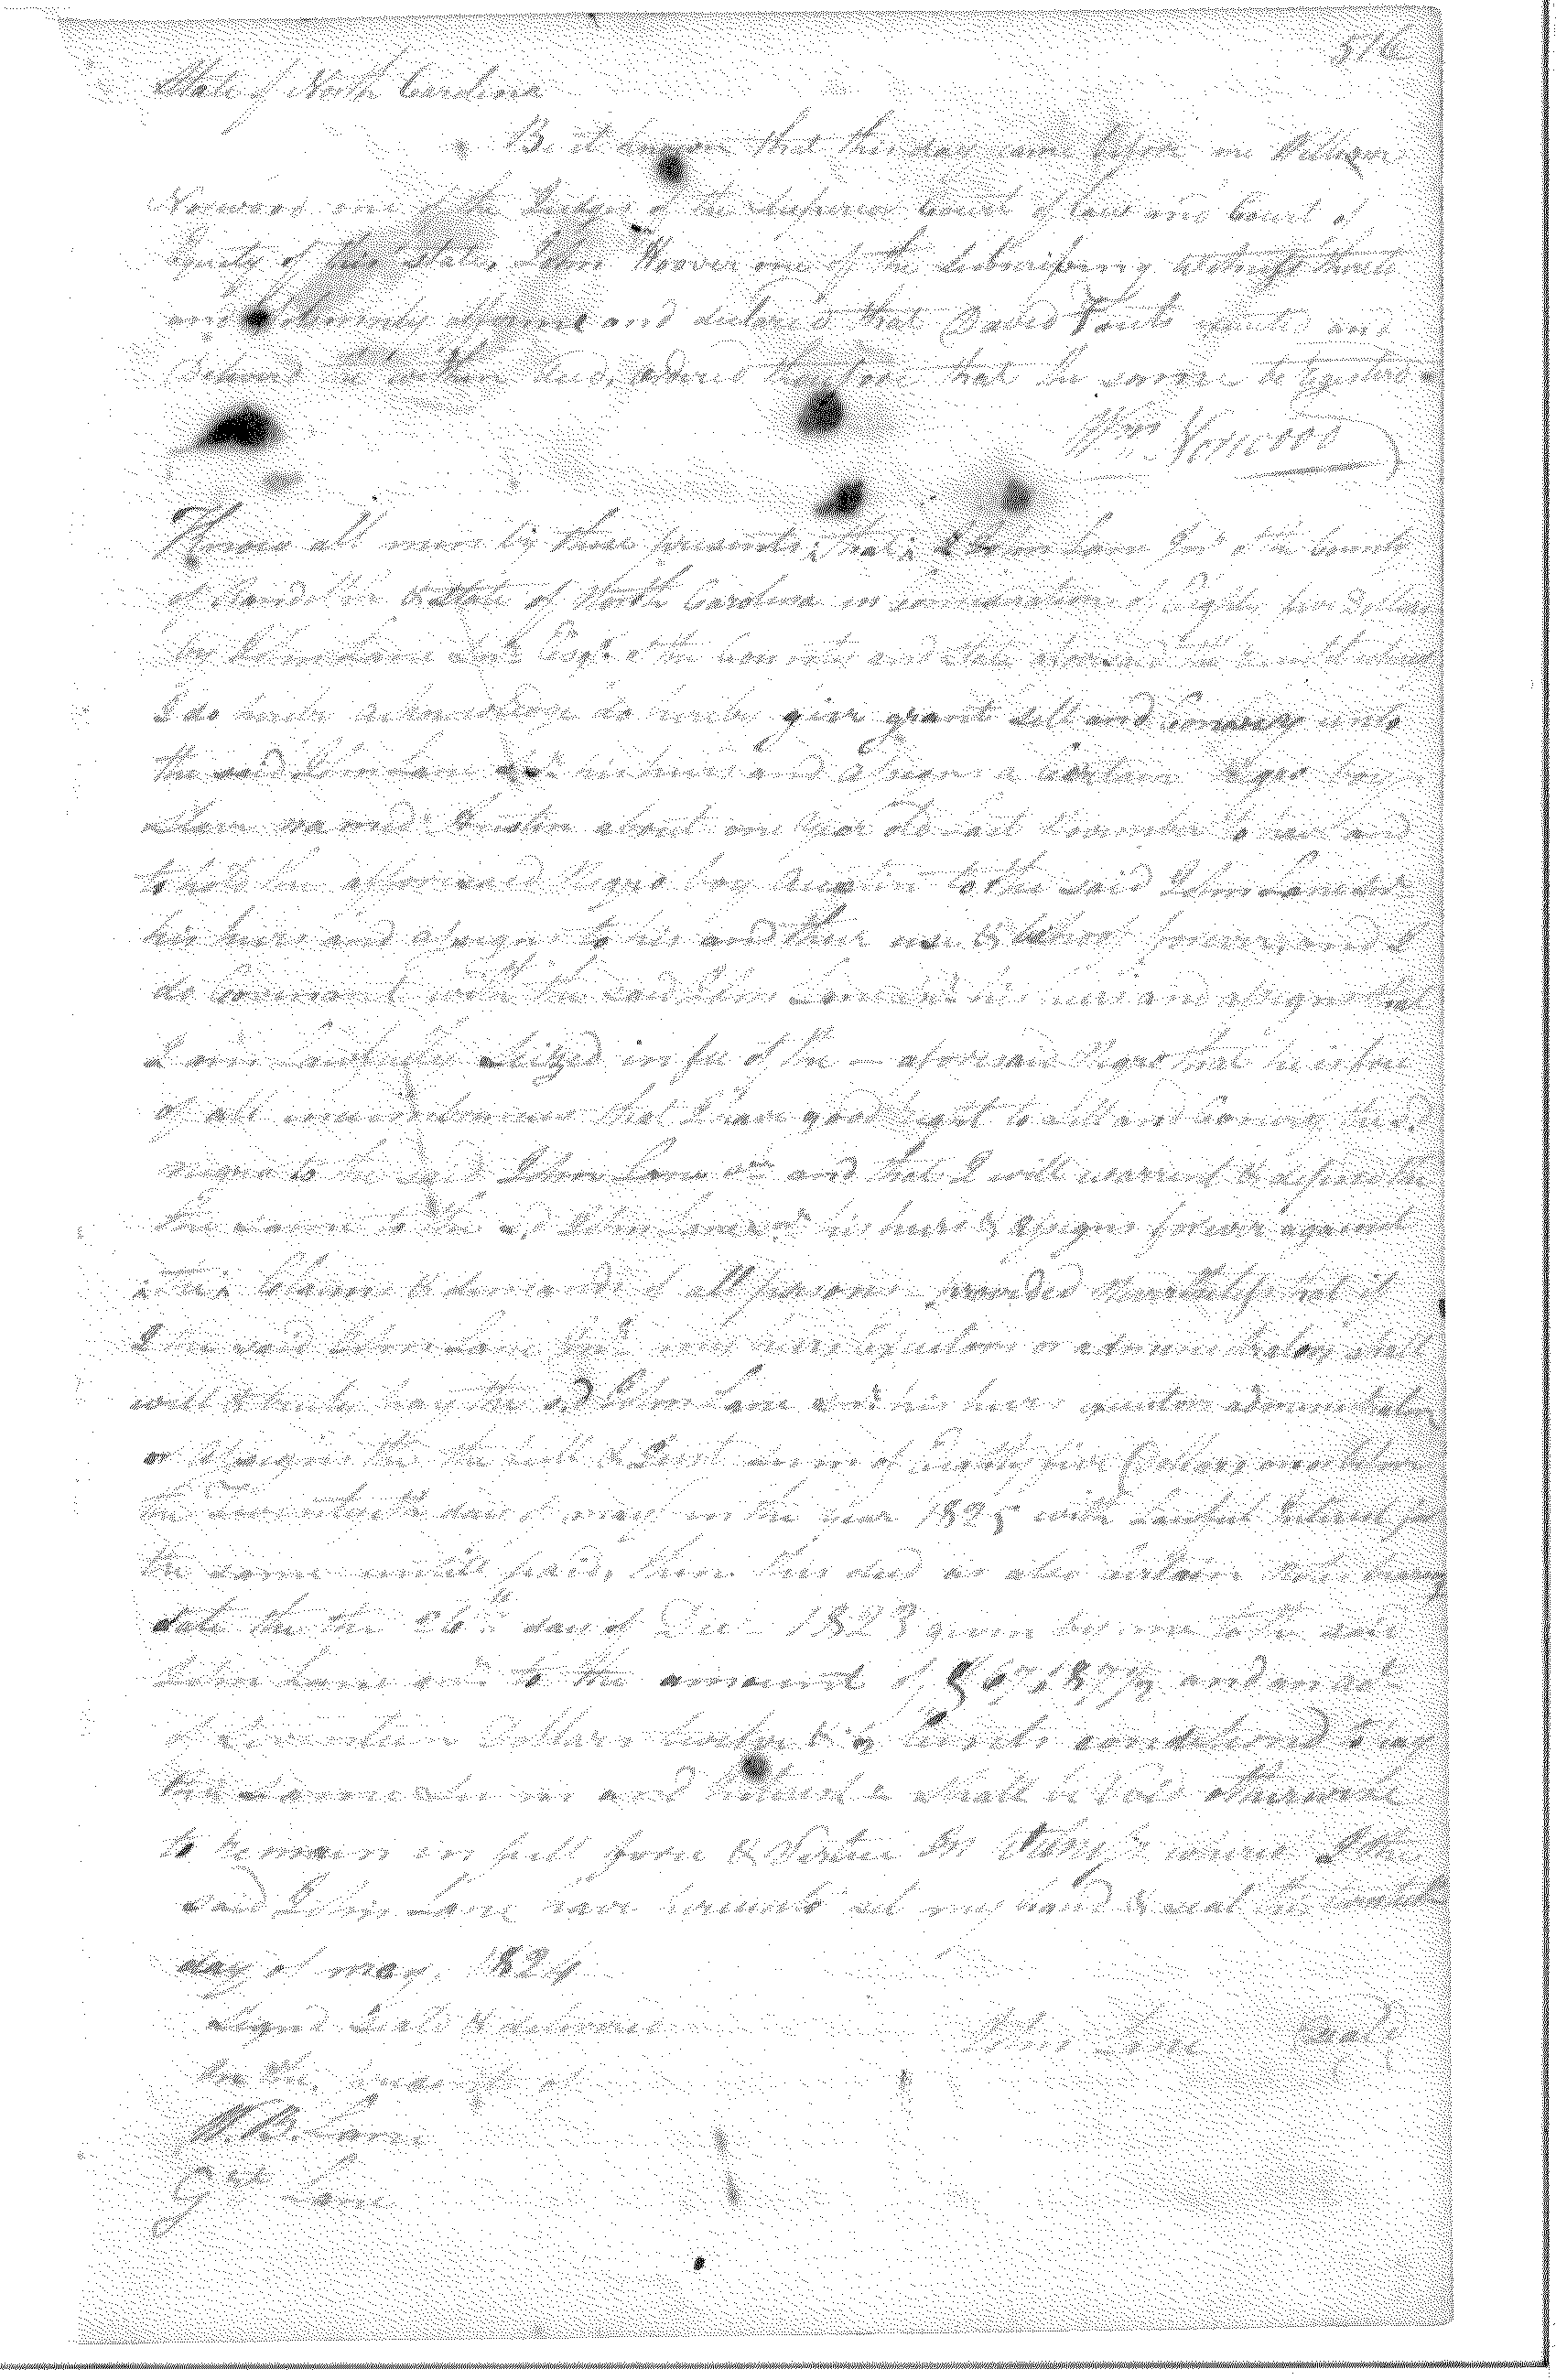 516
State of North Carolina
Be it known that this day came before me William
Norwood one of the Judges of the Superior Court of Law and Court of
Equity of this State, John Hoover one of the subscribing Witness thereto
and solemnly affirmed and declared that David Fouts signed and
delivered the within deed, ordered therefore that the same be registerd
Wm Norwood
Know all men by these presents, that I John Lane Junr of the County
of Randolph & State of North Carolina in consideration of Eighty five Dollars
by John Lane Senr Esqr of the County and State aforesaid the receipt whereof
I do hereby acknowledge do hereby give grant sell and Convey unto
the said John Lane senr his heirs and assigns a Certain Negro boy
Slave named Austin about one year old last November to have and
to hold the afforesaid Negro boy Austin to the said John Lane senr
his heirs and assigns to his and their use & behoof forever, and I
do Covenant with the said John Lane senr his heirs and assigns that
I am Lawfully Seized in fee of the — aforesaid Negro that he is free
of all incumbrances that I have good right to sell and Convey the sd
negro to the said John Lane sr and that I will warrent & defend the
the same to the sd John Lane sr his heirs & assigns forever against
Claims & demands of all persons provided nevertheless that if
I the said John Lane Junr my heirs Executors or administrators shall
well & truly pay the sd John Lane senr his heirs executors administrators
or assigns the the full & Just sum of Eighty five Dollars on or before
the day of may in the year 1825 with Lawful Interest for
the same untill paid, then this deed as also certain Note bearing
date the the 26th day of Decr 1823 given by me to the said
John Lane senr to the amount of $67,87½ and
of Seventeen Dollars twelve & ½ Cents conditiond to pay
the same Sum and Interest shall be Void otherwise
to remain in full force & Virtue In Witness whereof I the
said John Lane have hereunto set my hand & seal this
day of may, 1824
Signd Seald & delivered
In the presents of
John Lane Seal
W. B. Lane
Lane